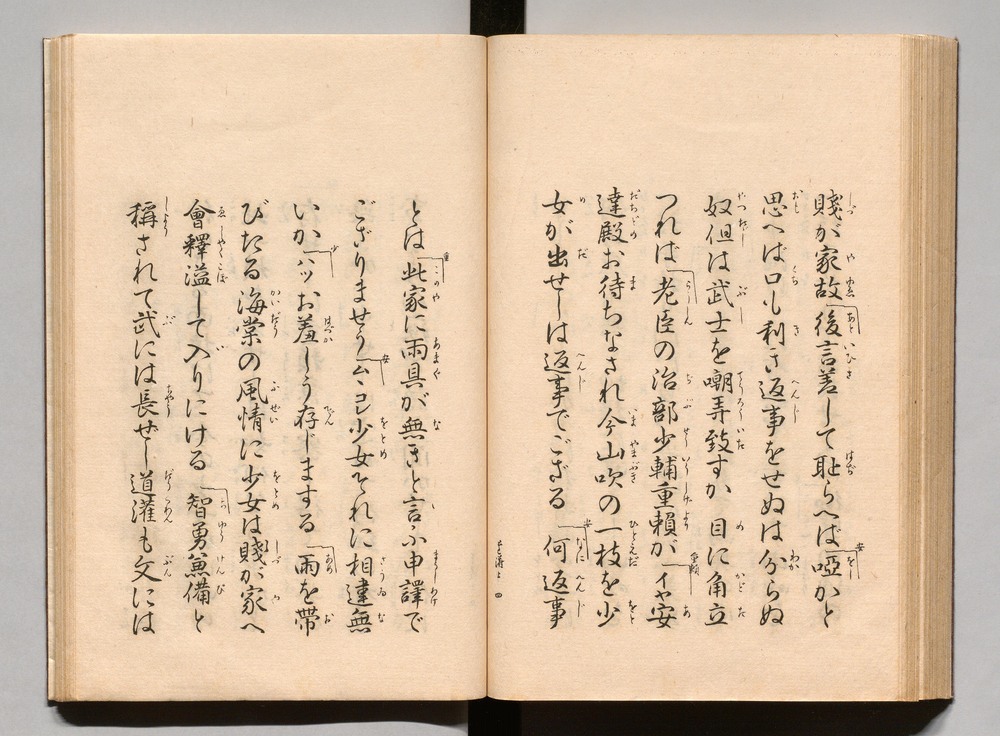 賤が家故後言差して耻らへば啞かと
思へば口も利き返事をせぬは分らぬ
奴但は武士を嘲弄致すか目に角立
つれば老臣の治部少輔重頼がイヤ安
達殿お待ちなされ今山吹の一枝を少
女が出せしは返事でござる何返事
とは此家に雨具が無きと言ふ申譯で
ござりませうムヽコレ少女それに相違無
いかハッお羞しう存じまする雨を帶
びたる海棠の風情に少女は賤が家へ
會釋溢して入りにける智勇兼備と
稱されて武には長ぜし道灌も文には